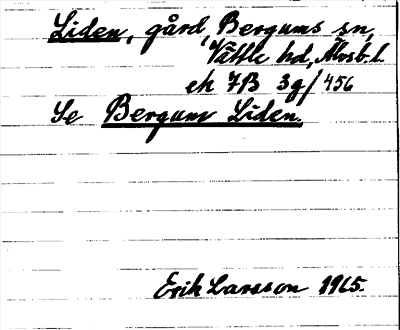 Liden, gård, Bergums sn,
Vättle hd, Älvsb. l.
ek 7B 3g/456
Se Bergum Liden.
Erik Larsson 1965.